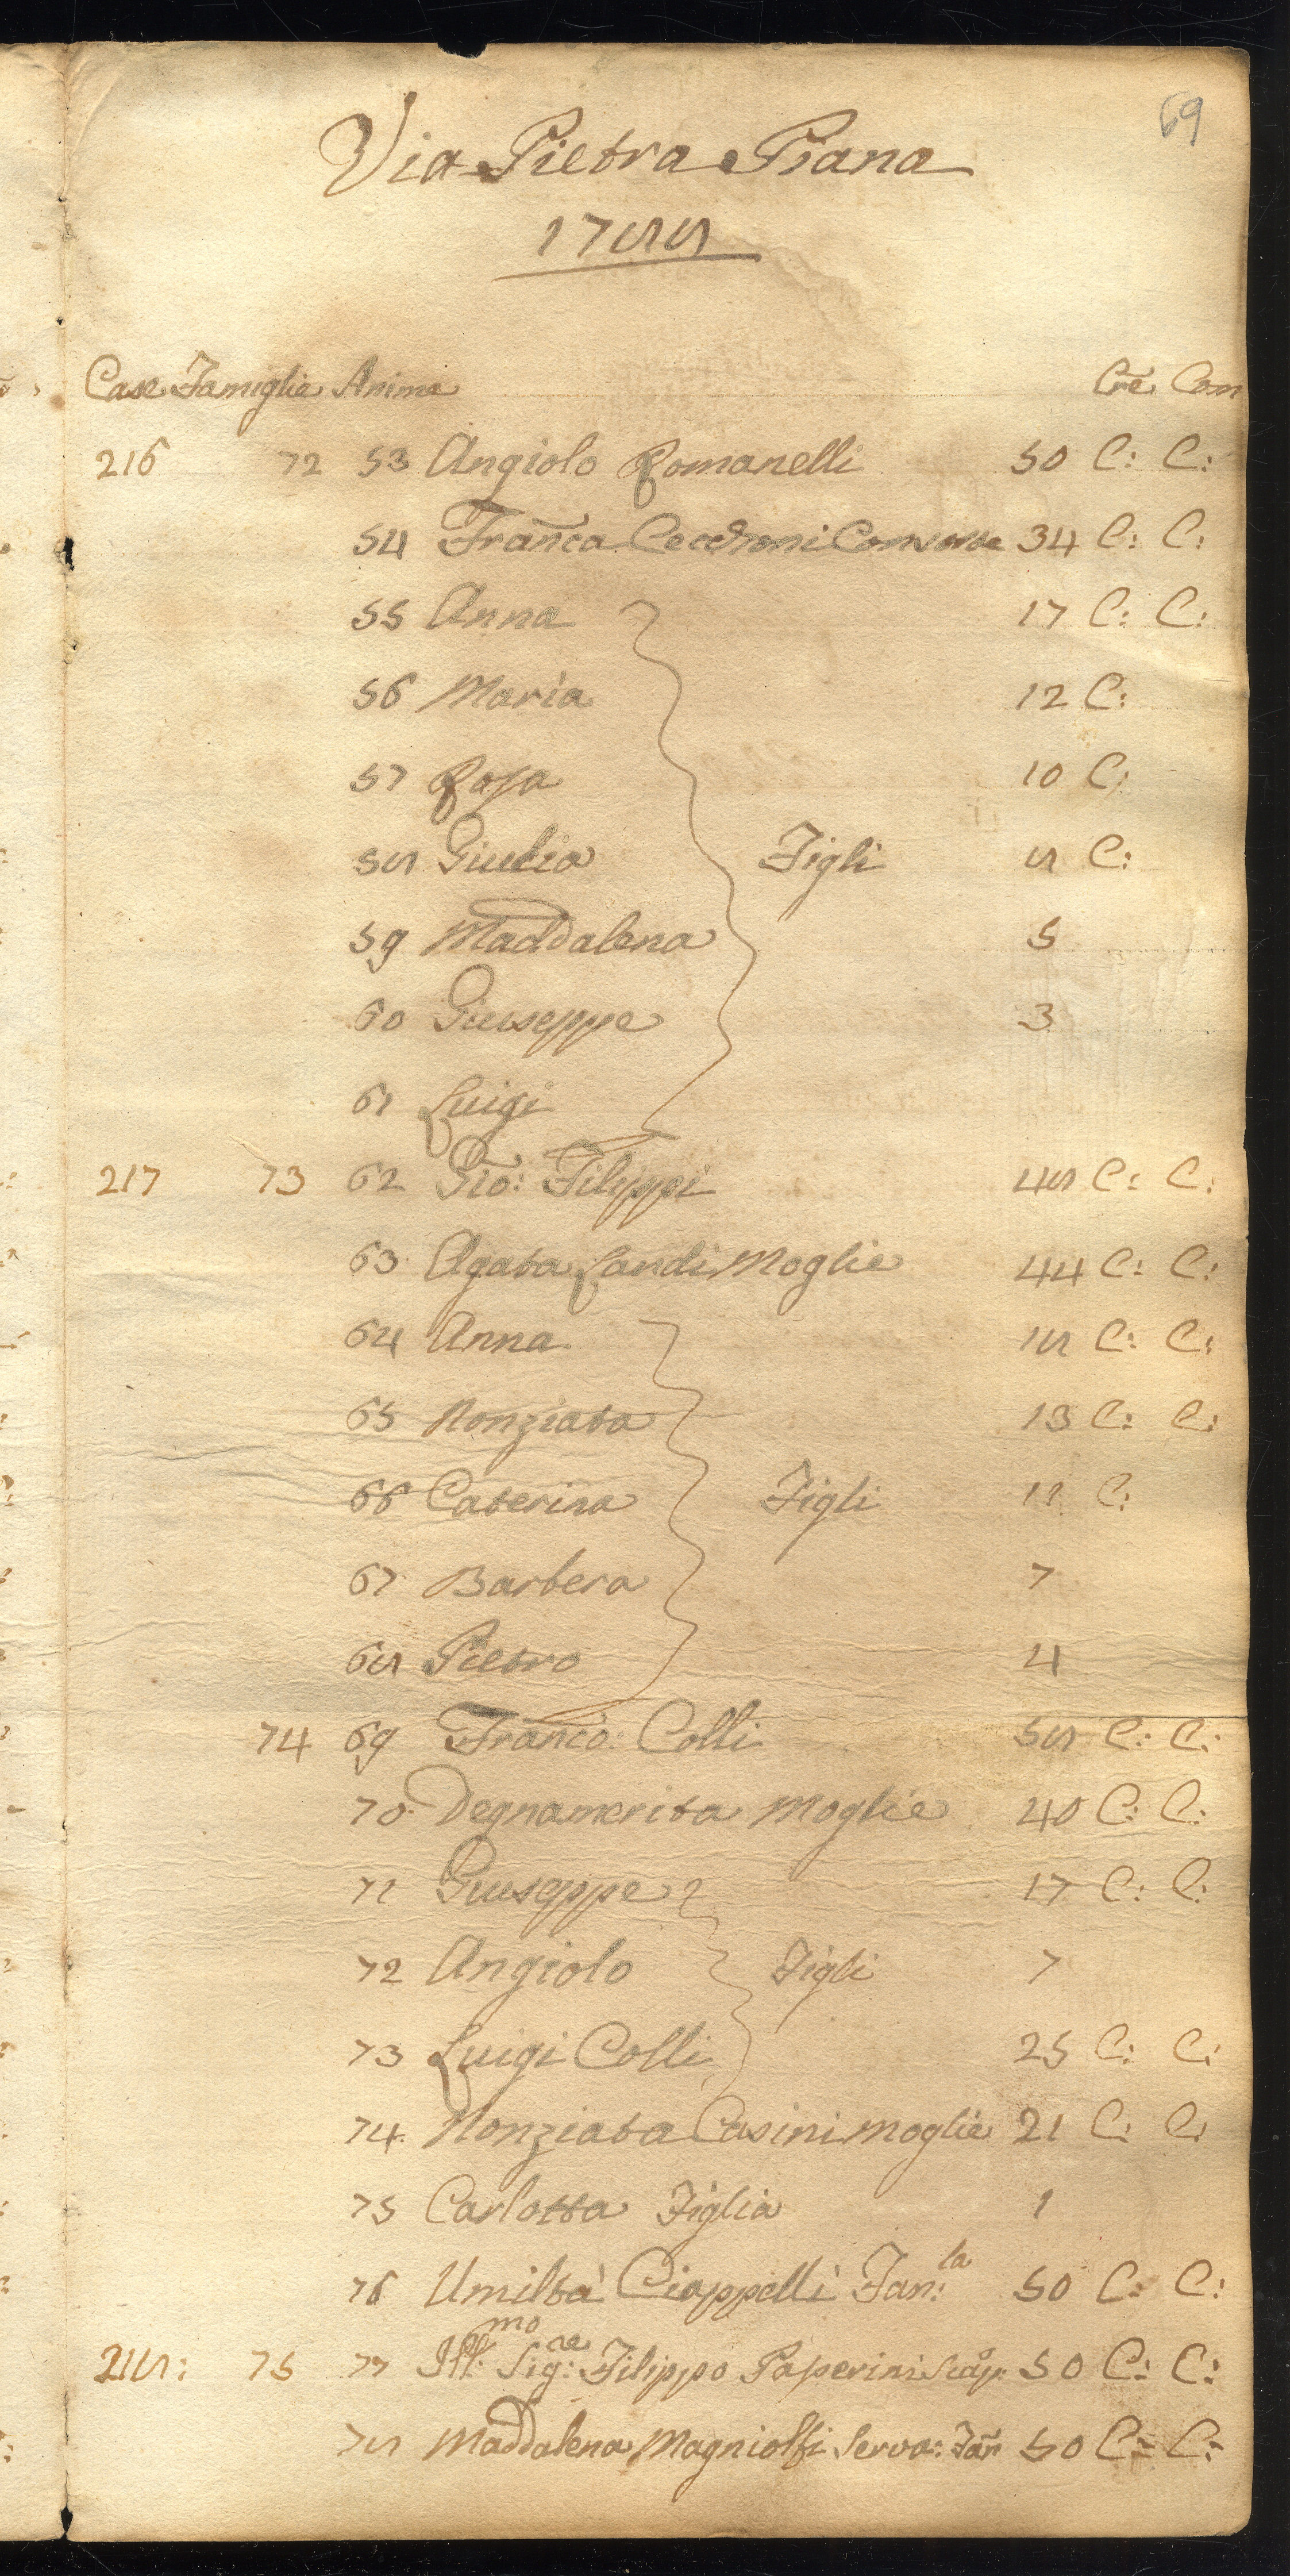 69
Via Pietra Piana
1788
Case Famiglie Anime Cre Com
216 72 53 Angiolo Romanelli 50 C: C:
54 Franca Cecchoni Consorte 34 C: C:
55 Anna 17 C: C:
56 Maria 12 C:
57 Rosa 10 C:
58 Giulia Figli 8 C:
59 Maddalena 5
60 Giuseppe 3
61 Luigi
217 73 62 Gio: Filippi 48 C: C:
63 Agata Landi Moglie 44 C: C:
64 Anna 18 C: C:
65 Nonziata 13 C: C:
66 Caterina Figli 11 C:
67 Barbera 7
68 Pietro 4
74 69 Franco: Colli 58 C: C:
70 Degnamerita Moglie 40 C: C:
71 Giuseppe 17 C: C:
72 Angiolo Figli 7
73 Luigi Colli 25 C: C:
74 Nonziata Casini moglie 21 C: C:
75 Carlotta Figlia 1
76 Umiltà Ciappelli Fan:la 50 C: C:
218: 75 77 Ill:mo Sig:re Filippo Paperini Scap: 50 C: C:
78 Maddalena Magniolfi Serva: Fan 50 C: C: